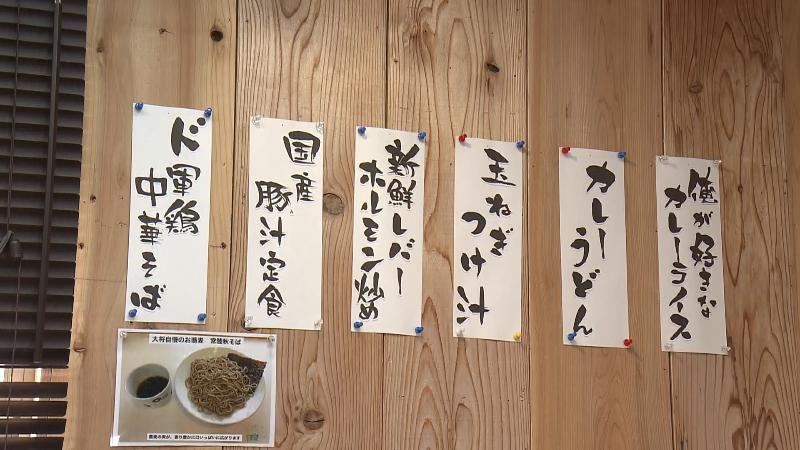 俺が好きな
カレーライス
カレー
うどん
玉ねぎ
つけ汁
新鮮レバー
ホルモン炒め
国産
豚汁定食
ド軍鶏
中華そば
大将自慢のお蕎麦 常陸秋そば